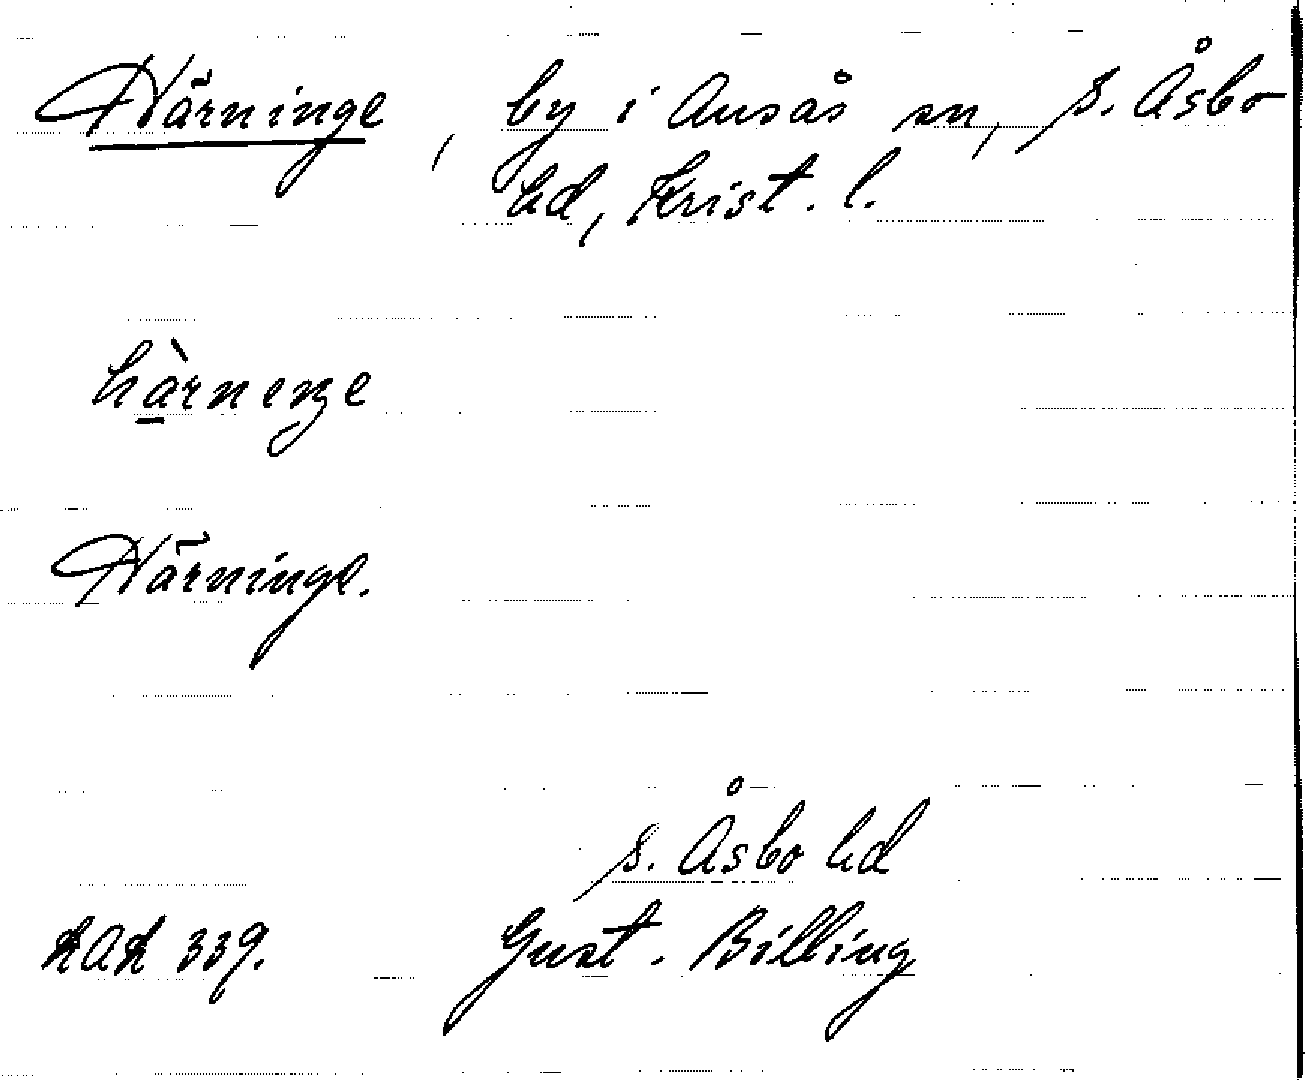 Härninge, by i Ausås sn, S. Åsbo
hd, Krist. l.
hàrneŋe
Härninge.
S. Åsbo hd
LAL 339. Gust. Billing